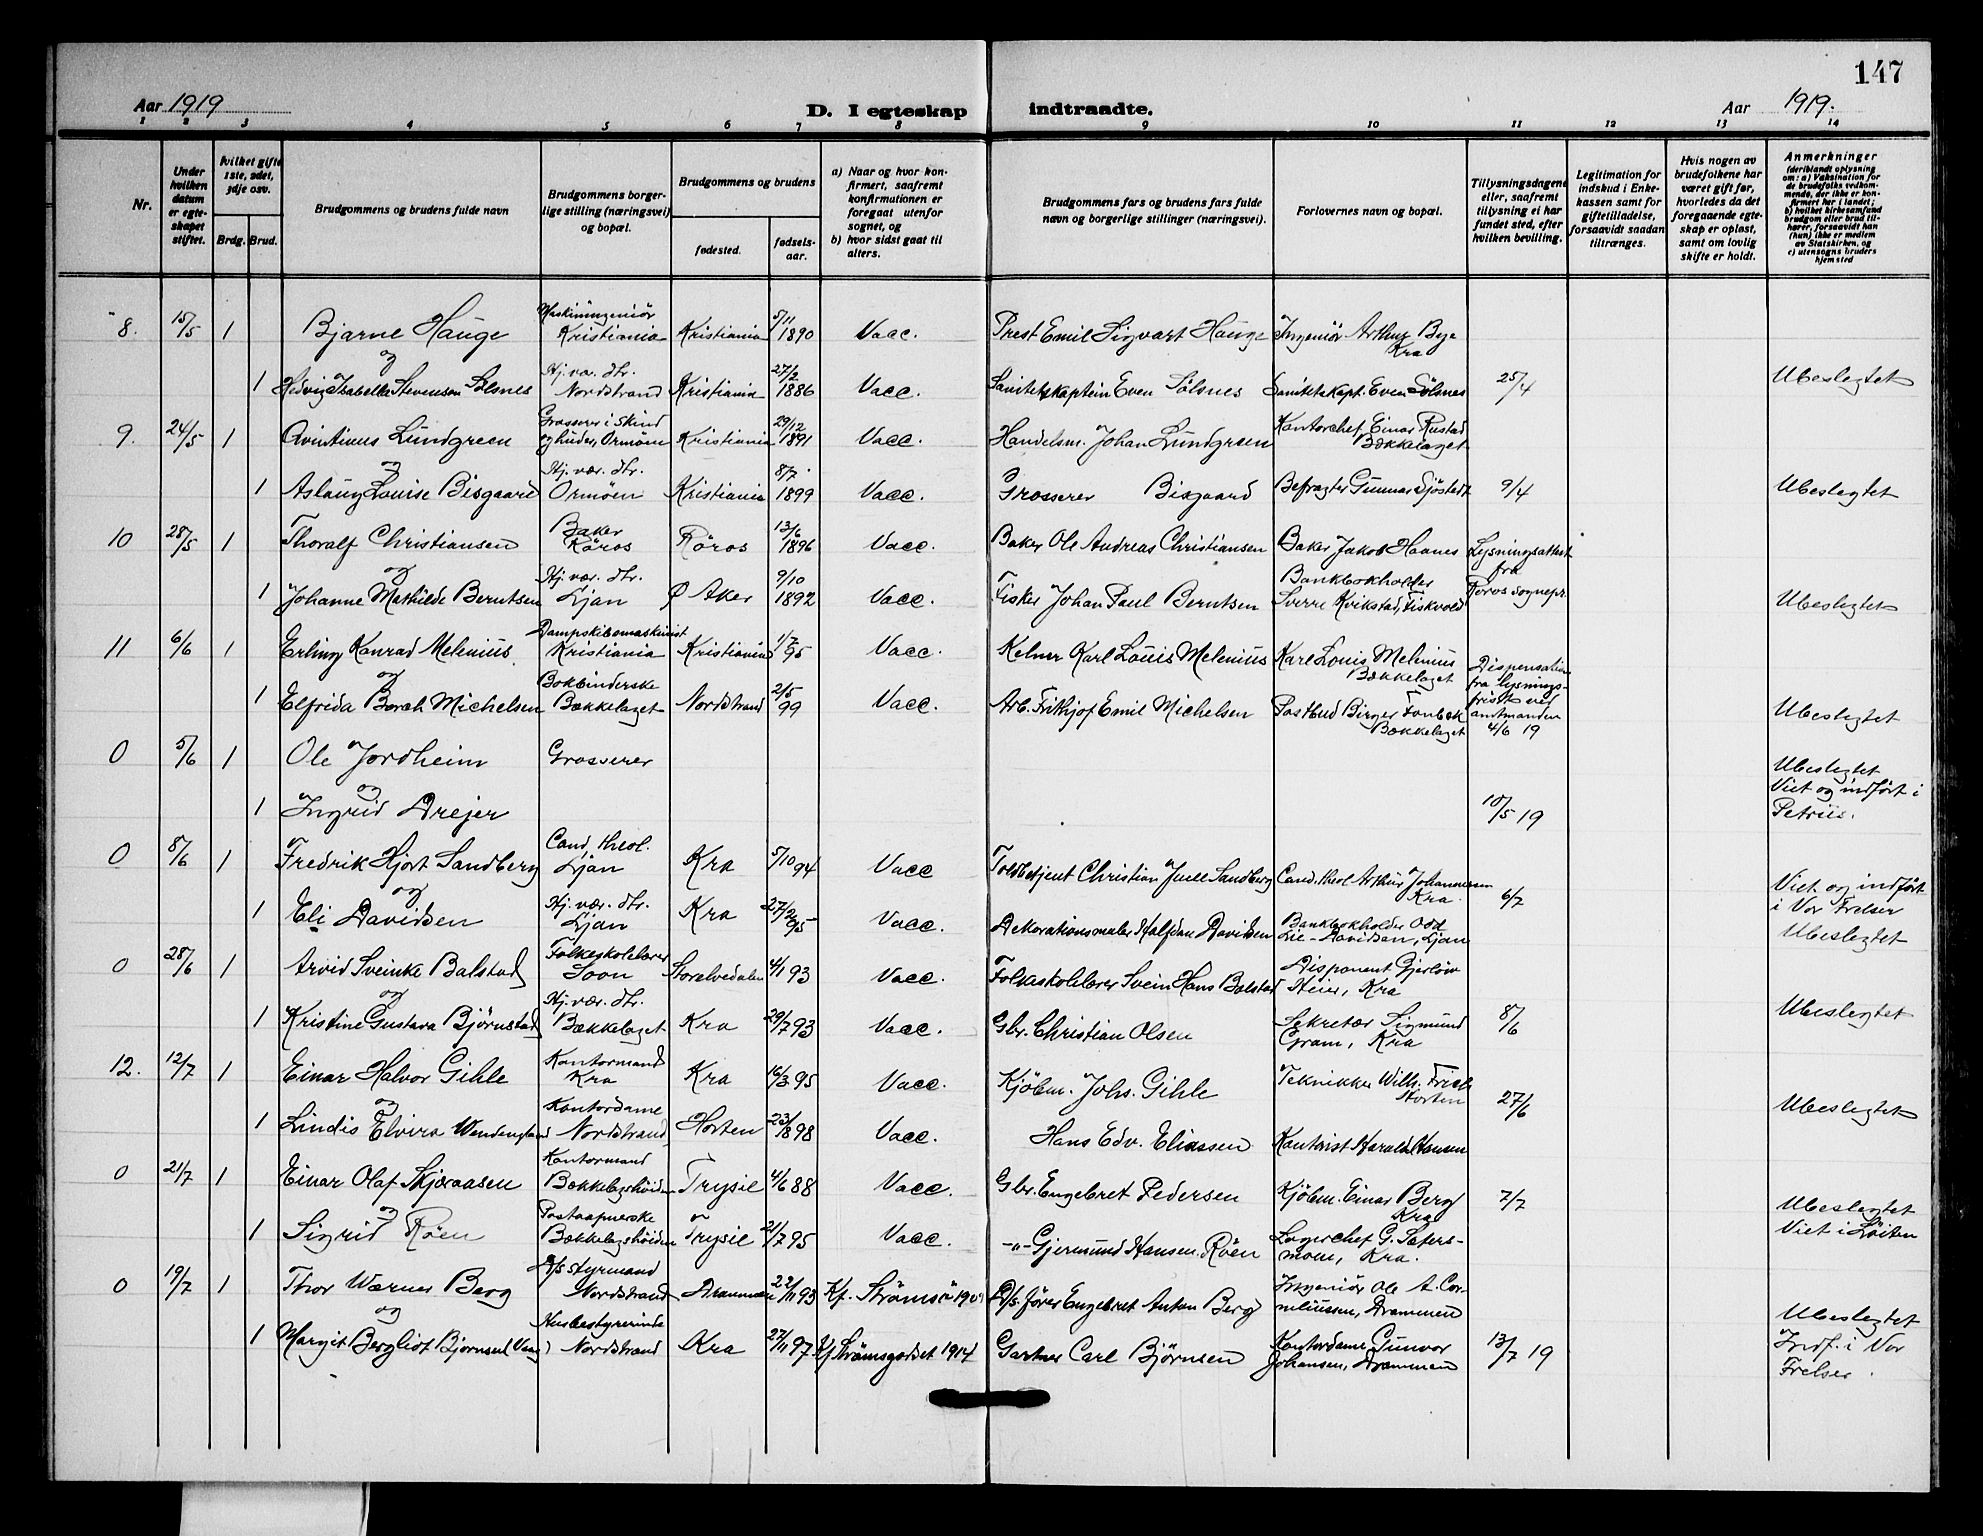 147
Aar 1919
D. I egteskap indtraadte.
Aar 1919.
1 2 3 4 5 6 7 8 9 10 11 12 13 14
Nr.
Under hvilken datum er egteskapet stiftet.
hvilket gifte 1ste, 2det, 3dje osv.
Brdg. Brud.
Brudgommens og brudens fulde navn
Brudgommens borgerlige stilling (næringsvei) og bopæl.
Brudgommens og brudens
fødested.
fødselsaar.
a) Naar og hvor konfirmert, saafremt konfirmationen er foregaat utenfor sognet, og
b) hvor sidst gaat til alters.
Brudgommens fars og brudens fars fulde navn og borgerlige stillinger (næringsvei).
Forlovernes navn og bopæl.
Tillysningsdagene eller, saafremt tillysning ei har fundet sted, efter hvilken bevilling.
Legitimation for indskud i Enkekassen samt for giftetilladelse, forsaavidt saadan tiltrænges.
Hvis nogen av brudefolkene har været gift før, hvorledes da det foregaaende egteskap er opløst, samt om lovlig skifte er holdt.
Anmerkninger
(deriblandt oplysning om: a) Vaksination for de brudefolks vedkommende, der ikke er konfirmert her i landet; b) hvilket kirkesamfund brudgom eller brud tilhører, forsaavidt han (hun) ikke er medlem av Statskirken, og c) utensogns bruders hjemsted
8. 15/5 1 Bjarne Hauge Maskiningeniør Kristiania Kristiania 5/11 1890 Vacc. Prest Emil Sigvart Hauge Ingeniør Arthur Bye Kra
og
1 Hedvig Isabella Stevenson Sølsnes Hj. vær. dtr. Nordstrand Kristiania 27/2 1886 Vacc. Sanitetskaptein Even Sølsnes Sanitetskapt. Even Sølsnes 25/4 Ubeslegtet
9. 24/5 1 Avintinus Lundgreen Grosserer i skind og huder, Ormøen Kristiania 29/12 1891 Vacc. Handelsm. Johan Lundgreen Kontorchef Einar Rustad Bækkelaget
og
1 Aslaug Louise Bisgaard Hj. vær. dtr. Ormøen Kristiania 8/7 1899 Vacc. Grosserer Bisgaard Befragter Gunnar Sjøstedt 9/4 Ubeslegtet
10 28/5 1 Thoralf Christiansen Baker Røros Røros 13/6 1896 Vacc. Baker Ole Andreas Christiansen Baker Jakob Haanes Lysningsattest fra Røros sognepr.
og
1 Johanne Mathilde Berntsen Hj. vær. dtr. Ljan Ø Aker 9/10 1892 Vacc. Fisker Johan Paul Berntsen Bankbokholder Sverre Kvikstad, Fiskvold Ubeslegtet
11 6/6 1 Erling Konrad Melenius Dampskibsmaskinist Kristiania Kristiania 1/7 95 Vacc. Kelner Karl Louis Melenius Karl Louis Melenius Bækkelaget Dispensation fra lysningsfrist ved amtmanden 4/6 19
og
1 Elfrida Borch Michelsen Bokbinderske Bækkelaget Nordstrand 2/5 99 Vacc. Arb. Frithjof Emil Michelsen Postbud Birger Fonbek Bækkelaget Ubeslegtet
0 5/6 1 Ole Jordheim Grosserer
og
1 Ingrid Drejer 10/5 19 Ubeslegtet Viet og indført i Petrus.
0 8/6 1 Fredrik Hjort Sandberg Cand. theol. Ljan Kra 5/10 94 Vacc Toldbetjent Christian Juell Sandberg Cand. theol Arthur Johannesen Kra. 6/7 Viet og indført i Vor Frelser
og
1 Eli Davidsen Hj. vær. dtr. Ljan Kra 27/2 95 Vacc. Dekorationsmaler Halfdan Davidsen Bankbokholder Odd Lie-Davidsen, Ljan Ubeslegtet
0 28/6 1 Arvid Sveinke Balstad Folkeskolelærer Soon Storelvedalen 4/1 93 Vacc. Folkeskolelærer Svein Hans Balstad Disponent Gjerløw Heier, Kra
og
1 Kristine Gustava Bjørnstad Hj. vær. dtr. Bækkelaget Kra 29/7 93 Vacc. Gbr. Christian Olsen Sekretær Sigmund Gram, Kra 8/6 Ubeslegtet
12. 12/7 1 Einar Halvor Gihle Kontormand Kra Kra 16/3 95 Vacc. Kjøbm. Johs. Gihle Teknikker Wilh. Horten 27/6
og
1 Lindis Elvira Kontordame Nordstrand Horten 23/1 898 Vacc. Hans Edv. Eliassen Kontorist Harald Hansen Ubeslegtet
0 21/7 1 Einar Olaf Skjæraasen Kontormand Bækkelagshøiden Trysil 4/6 88 Vacc. Gbr. Engebret Pedersen Kjøbm. Einar Berg Kra 7/7 Ubeslegtet
og
1 Sigrid Røen Postaapnerske Bækkelagshøiden Trysil 21/7 95 Vacc. -"- Gjermund Hansen Røen Lagerchef G. Sætersmoen, Kra. Viet i Løiten
0 19/7 1 Thor Wærner Berg D/s styrmand Nordstrand Drammen 22/11 93 Kf. Strømsø D/s. fører Engebret Anton Berg Ingeniør Ole A. Corneliussen, Drammen
og
1 Margit Bergliot Bjørnsen Husbestyrerinde Nordstrand Kra 27/11 97 Kf Strømsgodset 1914 Gartner Carl Bjørnsen Kontordame Gunvor Johansen, Drammen 13/7 19 Ubeslegtet Indf. i Vor Frelser.